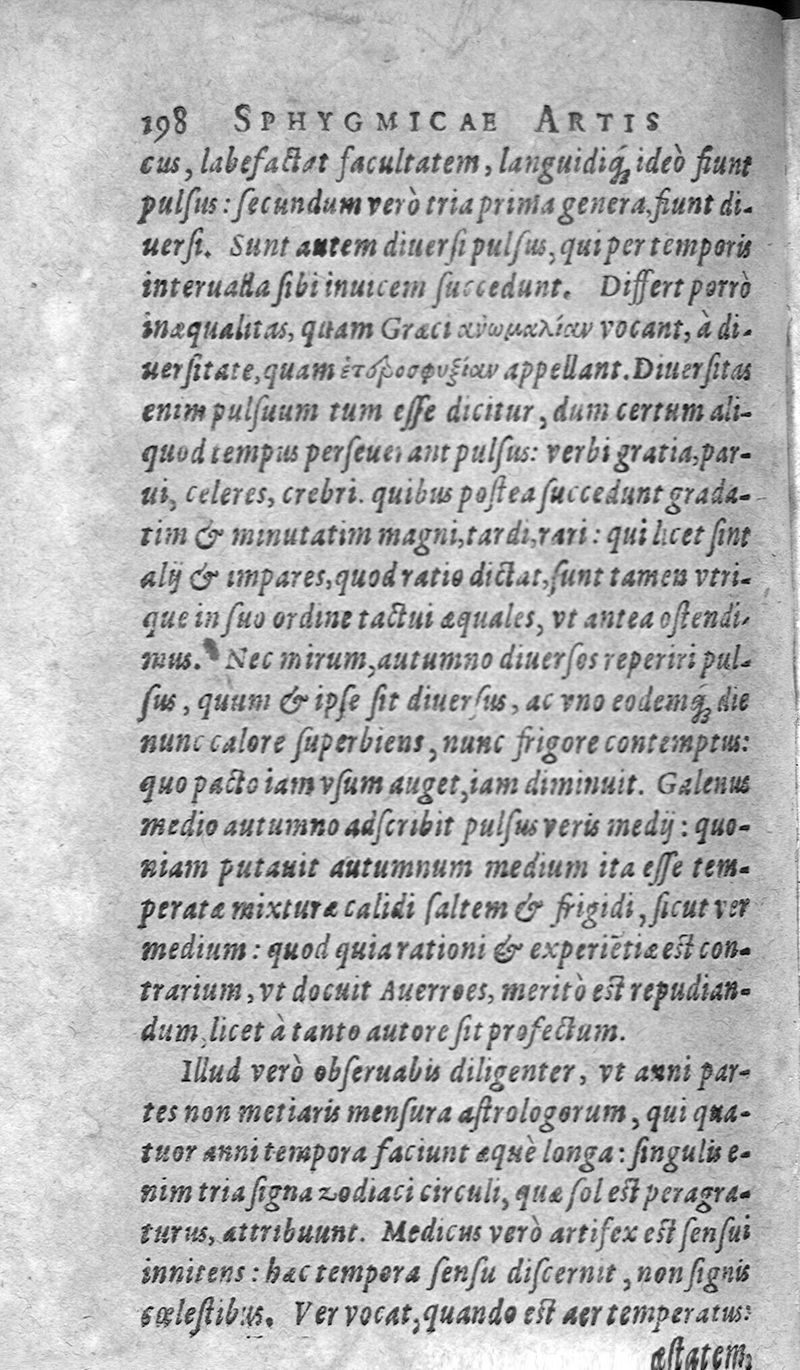 198 SPHYGMICAE ARTIS
cus, labefactat facultatem, languidiq́; ideò fiunt
pulsus: secundum verò tria prima genera, fiunt di-
uersi. Sunt autem diuersi pulsus, qui per temporis
interualla sibi inuicem succedunt. Differt porrò
inæqualitas, quam Græci ἀνωμαλίαν vocant, à di-
uersitate, quam ἑτεροσφυξίαν appellant. Diuersitas
enim pulsuum tum esse dicitur, dum certum ali-
quod tempus perseuerant pulsus: verbi gratia, par-
ui, celeres, crebri. quibus postea succedunt grada-
tim & minutatim magni, tardi, rari: qui licet sint
alij & impares, quod ratio dictat, sunt tamen vtri-
que in suo ordine tactui æquales, vt antea ostendi-
mus. Nec mirum, autumno diuersos reperiri pul-
sus, quum & ipse sit diuersus, ac vno eodemq́; die
nunc calore superbiens, nunc frigore contemptus:
quo pacto iam vsum auget, iam diminuit. Galenus
medio autumno adscribit pulsus veris medij: quo-
niam putauit autumnum medium ita esse tem-
peratæ mixturæ calidi saltem & frigidi, sicut ver
medium: quod quia rationi & experiētiæ est con-
trarium, vt docuit Auerroes, meritò est repudian-
dum, licet à tanto autore sit profectum.
Illud verò obseruabis diligenter, vt anni par-
tes non metiaris mensura astrologorum, qui qua-
tuor anni tempora faciunt æquè longa: singulis e-
nim tria signa zodiaci circuli, quæ sol est peragra-
turus, attribuunt. Medicus verò artifex est sensui
innitens: hæc tempora sensu discernit, non signis
cœlestibus. Ver vocat, quando est aer temperatus:
æstatem,